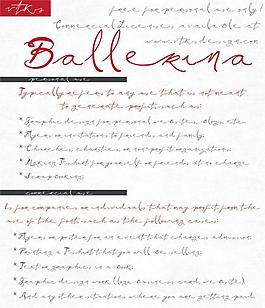 vtks
free for personal use only!
Commercial Licenses available at
www.vtks.design.com
Ballerina
personal use
Typically refers to any use that is not meant
to generate profit, such as:
* Graphic design for personal use (web site, blog, etc
* Flyers or invitations to friends and family;
* Churches, charities, or non profit organizations;
* Making T-shirt for yourself or friends, at no charge
* Scrapbooking
commercial use
Is for companies or individuals that may profit from the
use of the font, such as the following cases:
* Flyers or poster for an event that charges admission
* Printing a T-shirt that you will be selling;
* Text or graphics in a book;
* Graphic design work (logo, business card, web site)
* And any other situations where you are getting paid.